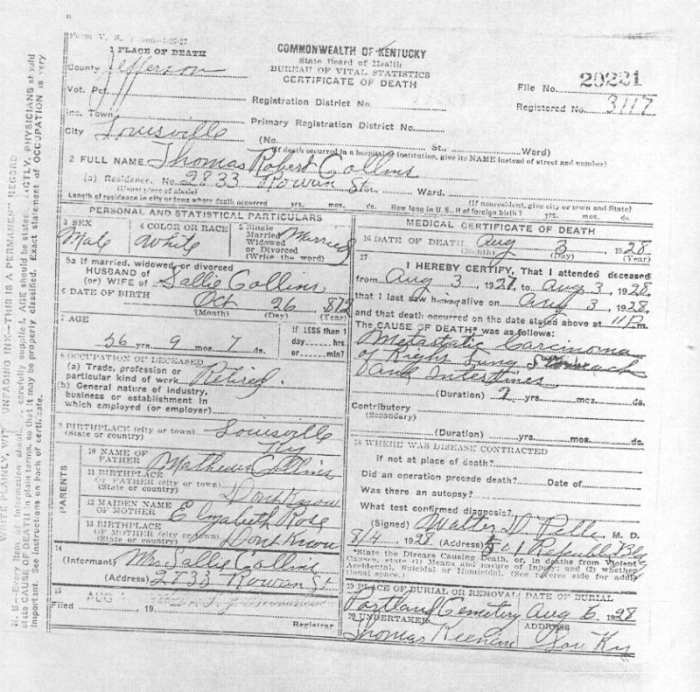 1 PLACE OF DEATH
COMMONWEALTH OF KENTUCKY
State Board of Health
BUREAU OF VITAL STATISTICS
CERTIFICATE OF DEATH
County Jefferson
File No. 20221
Vot. Pct.
Registration District No.
Registered No. 3117
Inc. Town
Primary Registration District No.
City Louisville
(No. St., Ward)
(If death occurred in a hospital or institution, give its NAME instead of street and number)
2 FULL NAME Thomas Robert Collins
(a) Residence. No. 2833 Rowan St. Ward.
(Usual place of abode) (If nonresident, give city or town and State)
Length of residence in city or town where death occurred yrs. mos. ds. How long in U. S., if of foreign birth? yrs. mos. ds.
PERSONAL AND STATISTICAL PARTICULARS
3 SEX
Male
4 COLOR OR RACE
White
5 Single
Married
Widowed
or Divorced
(Write the word)
Married
5a If married, widowed, or divorced
HUSBAND of
(or) WIFE of Sallie Collins
6 DATE OF BIRTH Oct 26 872
(Month) (Day) (Year)
7 AGE
56 yrs. 9 mos. 7 ds.
If LESS than 1
day hrs.
or min?
8 OCCUPATION OF DECEASED
(a) Trade, profession or
particular kind of work Retired.
(b) General nature of industry,
business or establishment in
which employed (or employer)
9 BIRTHPLACE (city or town) Louisville
(State or country) Ky
PARENTS
10 NAME OF
FATHER Mathew Collins
11 BIRTHPLACE
OF FATHER (city or town)
(State or country) Dont Know
12 MAIDEN NAME
OF MOTHER Elizabeth Rose
13 BIRTHPLACE
OF MOTHER (city or town)
(State or country) Dont Know
14
(Informant) Mrs Sallie Collins
(Address) 2833 Rowan St
15
Filed AUG 19
Registrar
MEDICAL CERTIFICATE OF DEATH
16 DATE OF DEATH Aug 3 1928
(Month) (Day) (Year)
17
I HEREBY CERTIFY, That I attended deceased
from Aug 3, 1927, to Aug 3, 1928,
that I last saw h alive on Aug 3, 1928,
and that death occurred on the date stated above at m.
The CAUSE OF DEATH* was as follows:
Metastatic Carcinoma
of Right Lung Stomach
and Intestines
(Duration) yrs. mos. ds.
Contributory
(Secondary)
(Duration) yrs. mos. ds.
18 WHERE WAS DISEASE CONTRACTED
If not at place of death?
Did an operation precede death? Date of
Was there an autopsy?
What test confirmed diagnosis?
(Signed) Walter D. M. D.
8/4 1928 (Address) Republic Bldg
*State the Disease Causing Death, or, in deaths from Violent
Causes, state (1) Means and nature of Injury; and (2) whether
Accidental, Suicidal or Homicidal. (See reverse side for addi-
tional space.)
19 PLACE OF BURIAL OR REMOVAL
DATE OF BURIAL
Portland Cemetery Aug 6, 1928
20 UNDERTAKER ADDRESS
Thomas Keenan Lou Ky